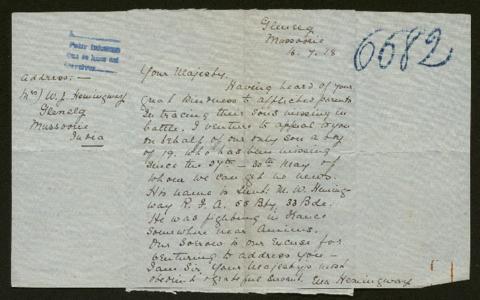 Glenelg
Mussoorie
16.7.18
6582
Address:—
(Mrs) W. J. Hemingway
Glenelg
Mussoorie
India
Your Majesty,
Having heard of your
great kindness to afflicted parents
in tracing their sons missing in
battle, I venture to appeal to you
on behalf of our only son a boy
of 19. who has been missing
since the 27th – 30th May of
whom we can get no news.
His name is Lieut: M. W. Heming-
way R. F. A. 55 Bty, 33 Bde.
He was fighting in France
somewhere near Amiens.
Our sorrow is our excuse for
venturing to address you –
I am Sir, Your Majesty's most
obedient & grateful servant. Eva Hemingway